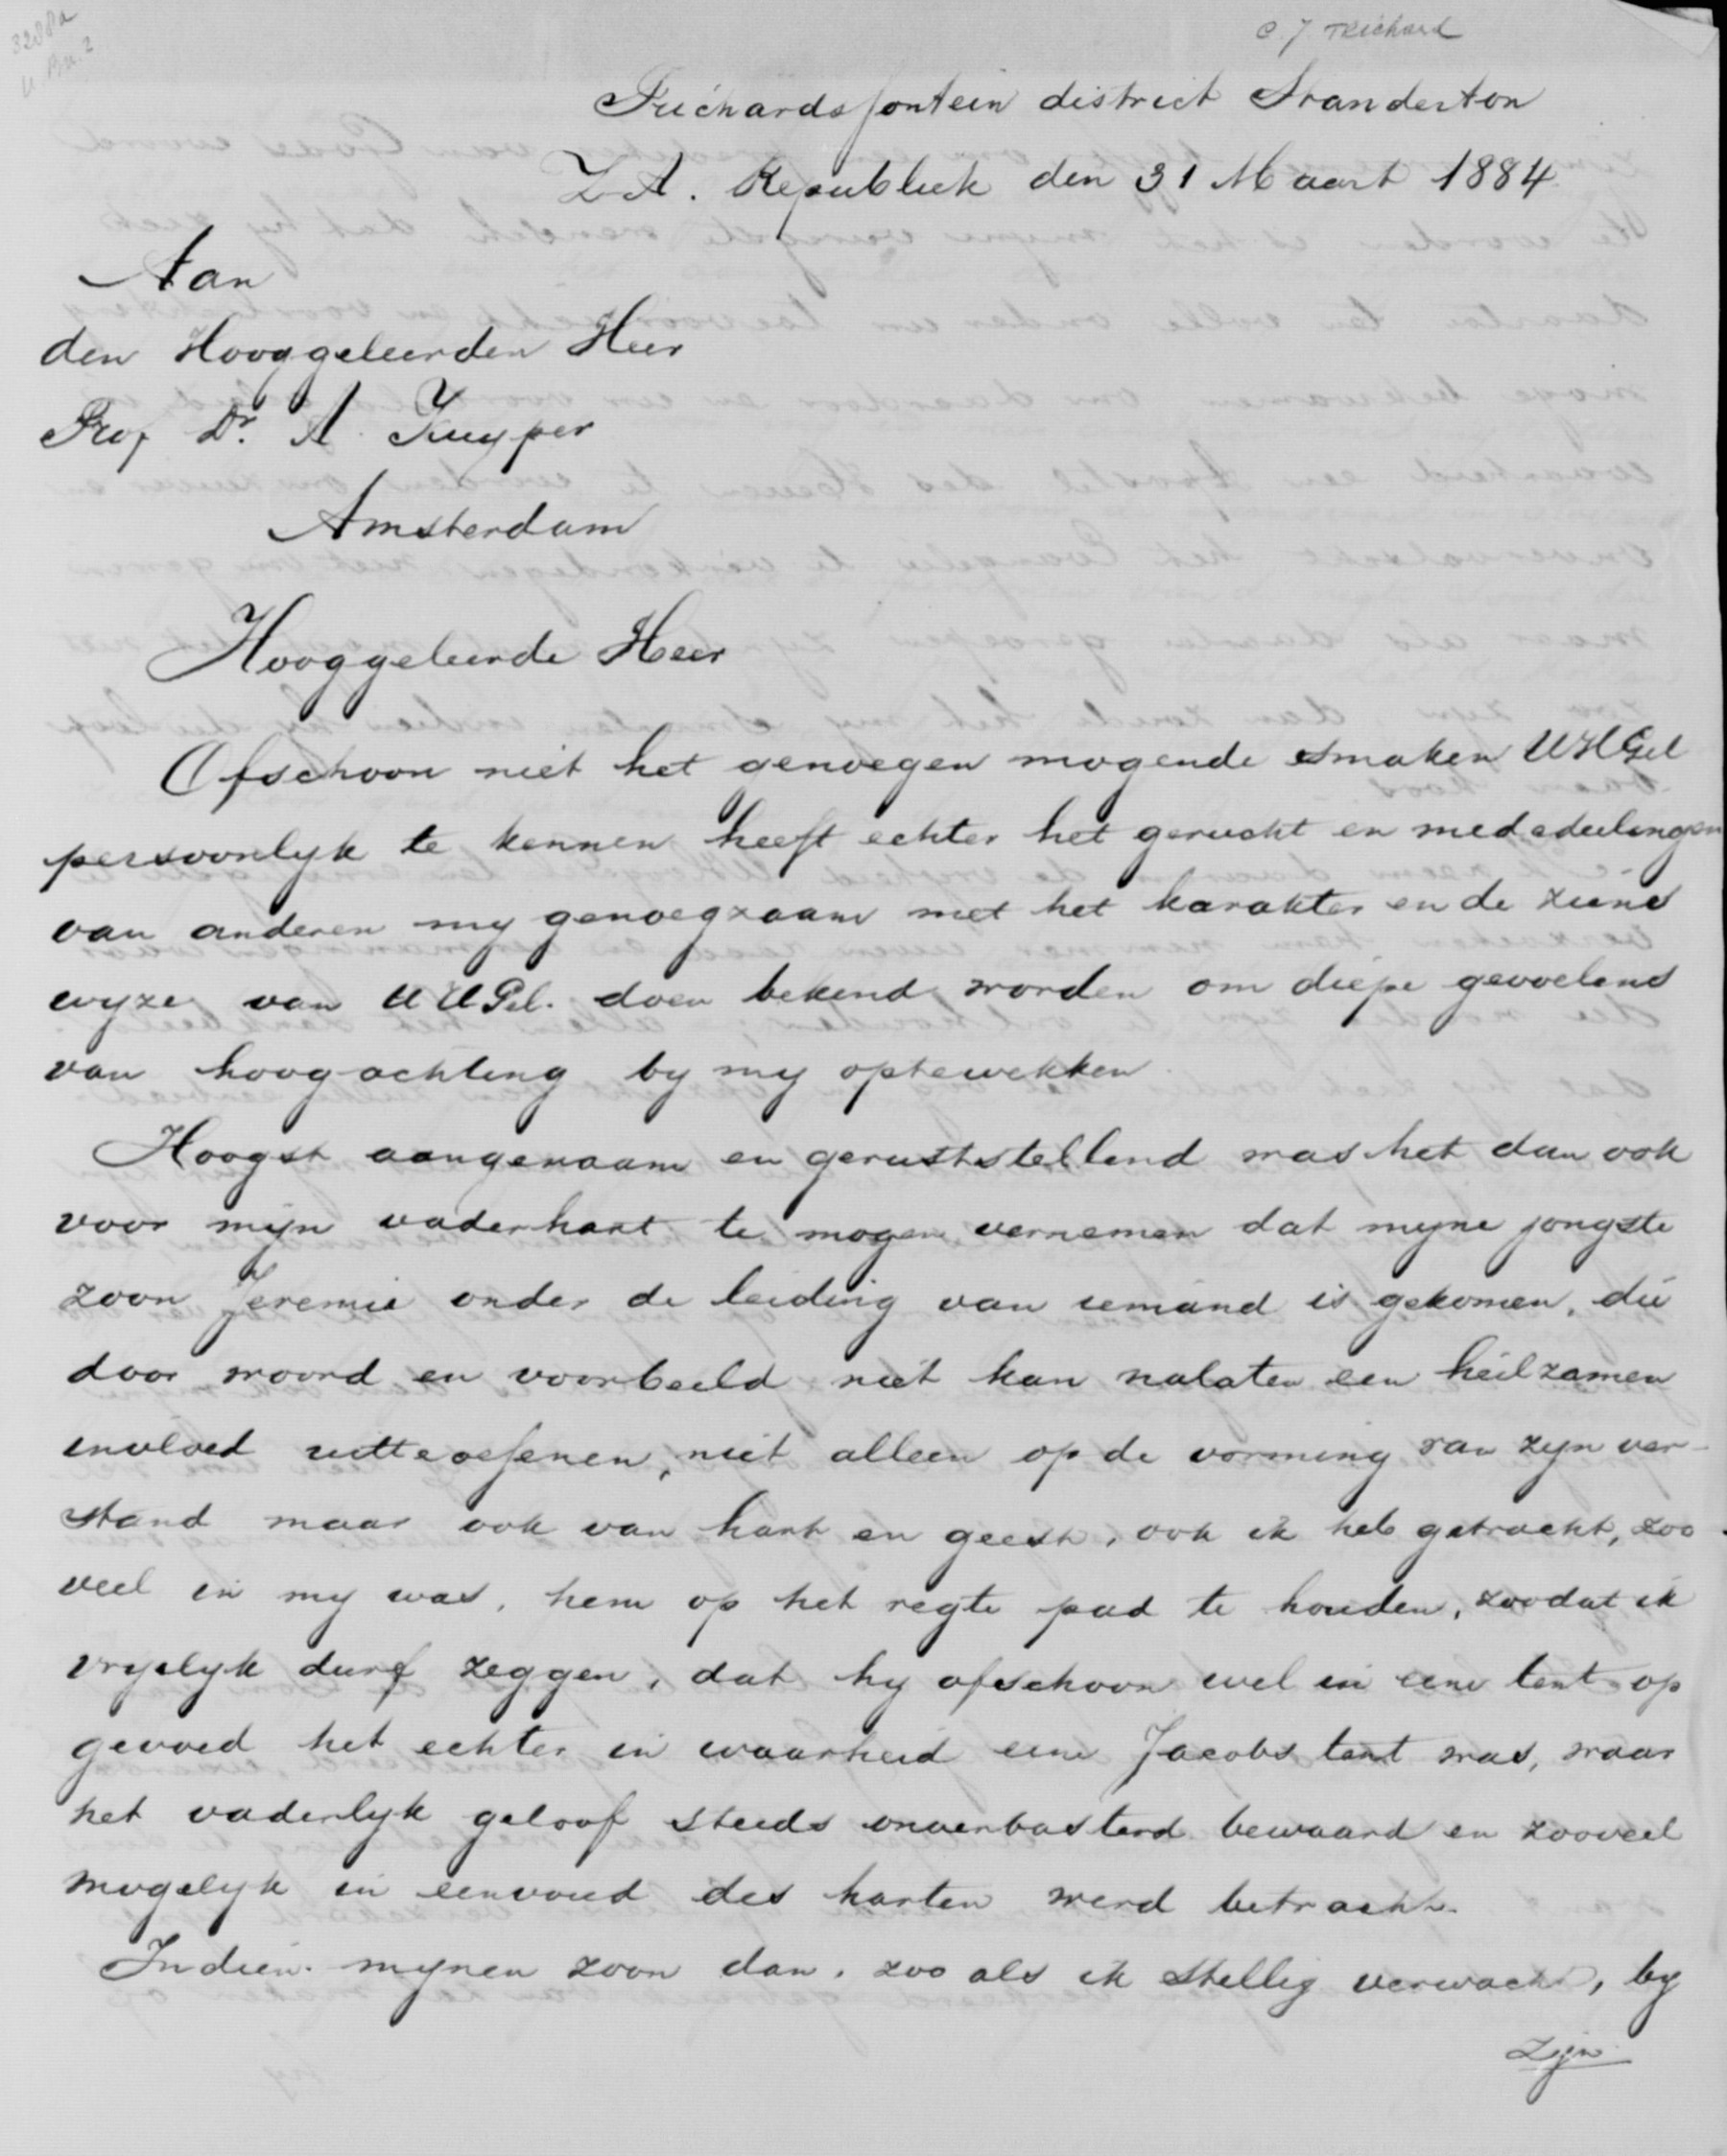 C. J Trichard
Trichardsfontein district Standerton
Z. A. Republiek den 31 Maart 1884
Aan
den Hooggeleerden Heer
Prof Dr. A. Kuyper
Amsterdam
Hooggeleerde Heer
Ofschoon niet het genoegen mogende smaken UHGel
persoonlyk te kennen heeft echter het gerucht en mededeelingen
van anderen my genoegzaam met het karakter en de ziens
wyze van UHGel. doen bekend worden om diepe gevoelens
van hoogachting by my optewekken
Hoogst aangenaam en geruststellend was het dan ook
voor mijn vaderhart te mogen vernemen dat myne jongste
zoon Jeremie onder de leiding van iemand is gekomen, die
door woord en voorbeeld niet kan nalaten een heilzamen
invloed uitteoefenen, niet alleen op de vorming van zyn ver-
stand maar ook van hart en geest, ook ik heb getracht, zoo
veel in my was, hem op het regte pad te houden, zoodat ik
vryelyk durf zeggen, dat hy ofschoon wel in eene tent op
gevoed het echter in waarheid eene Jacobs tent was, waar
het vaderlyk geloof steeds onverbasterd bewaard en zooveel
mogelyk in eenvoud des harten werd betracht.
Indien mynen zoon dan, zoo als ik stellig verwacht, by
zijn